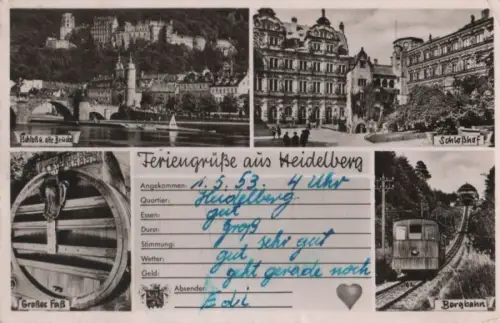 Schloß u. alte Brücke
Schloßhof
Feriengrüße aus Heidelberg
Angekommen: 1.5.53. 4 Uhr
Quartier: Heidelberg
Essen: gut
Durst: groß
Stimmung: gut, sehr gut
Wetter:
Geld: geht gerade noch
Absender: Edi
Großes Faß
Bergbahn